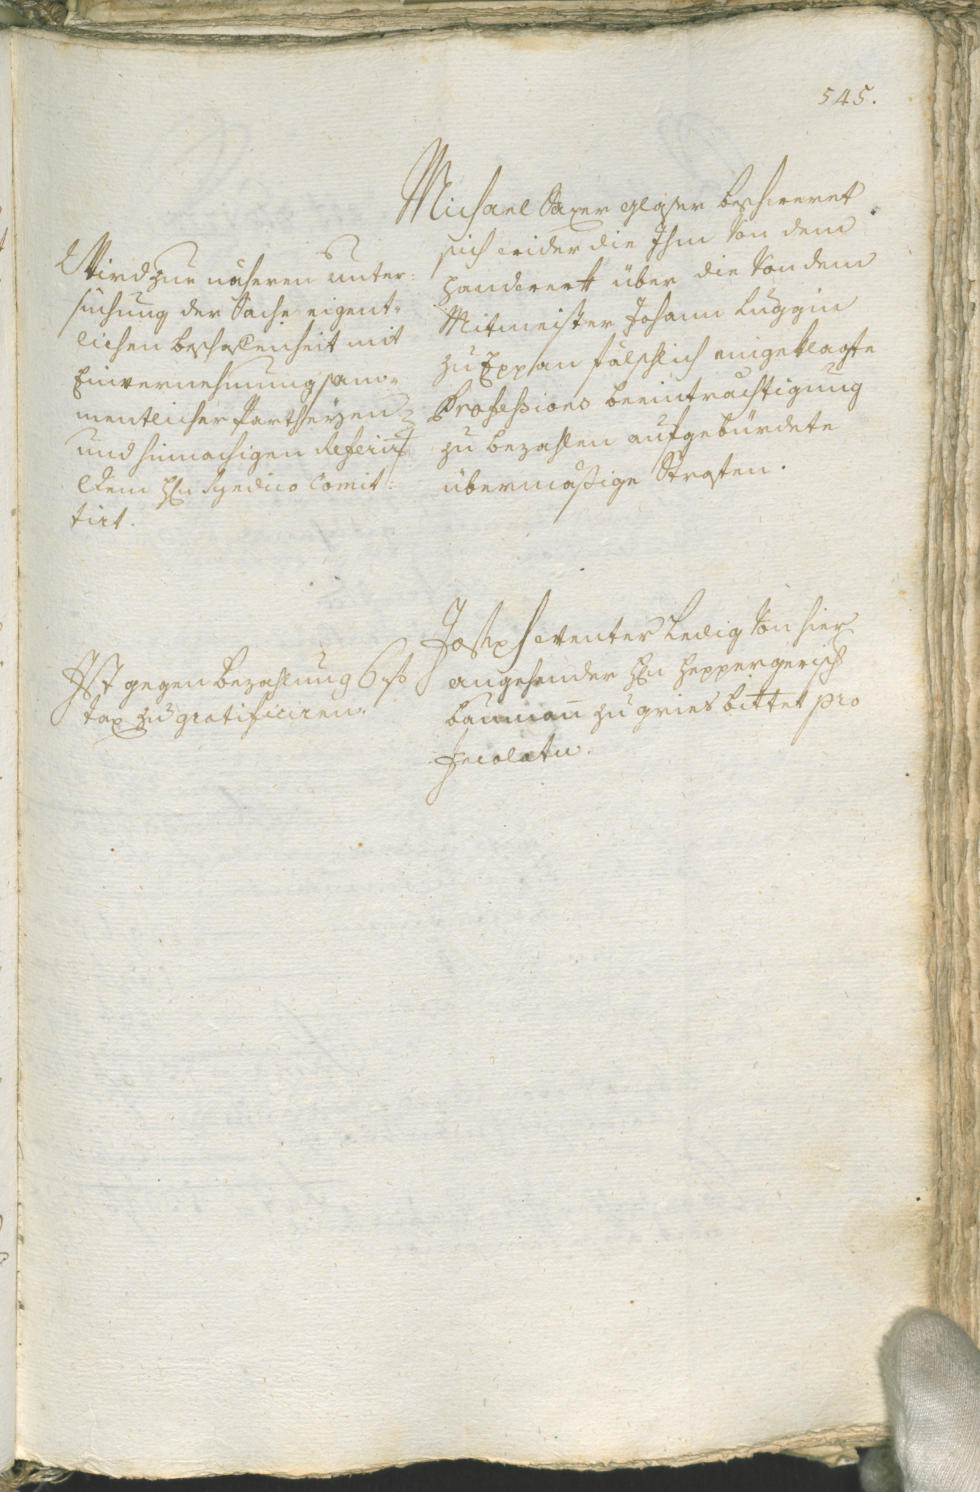 545.
Michael Saxer glaser beschweret
sich wider die Ihm von dem
Handwerk über die von dem
Mitmeister Johann Luggin
zu Eppan fälschlich eingeklagte
Professions beeinträchtigung
zu bezahlen aufgebürdete
übermäßige Straffen.
Wird zur näheren unter-
suchung der Sache eigent-
lichen beschaffenheit mit
Einvernehmung sam-
mentlicher Partheyen
und hinnachigen
dem Hn Syndico Comit-
tirt.
Joseph Wenter Ledig von hier
angehender Hn Heppergerisch
baumañ zu gries bittet pro
Incolatu.
Ist gegen bezahlung 6
tax zu gratificiren.